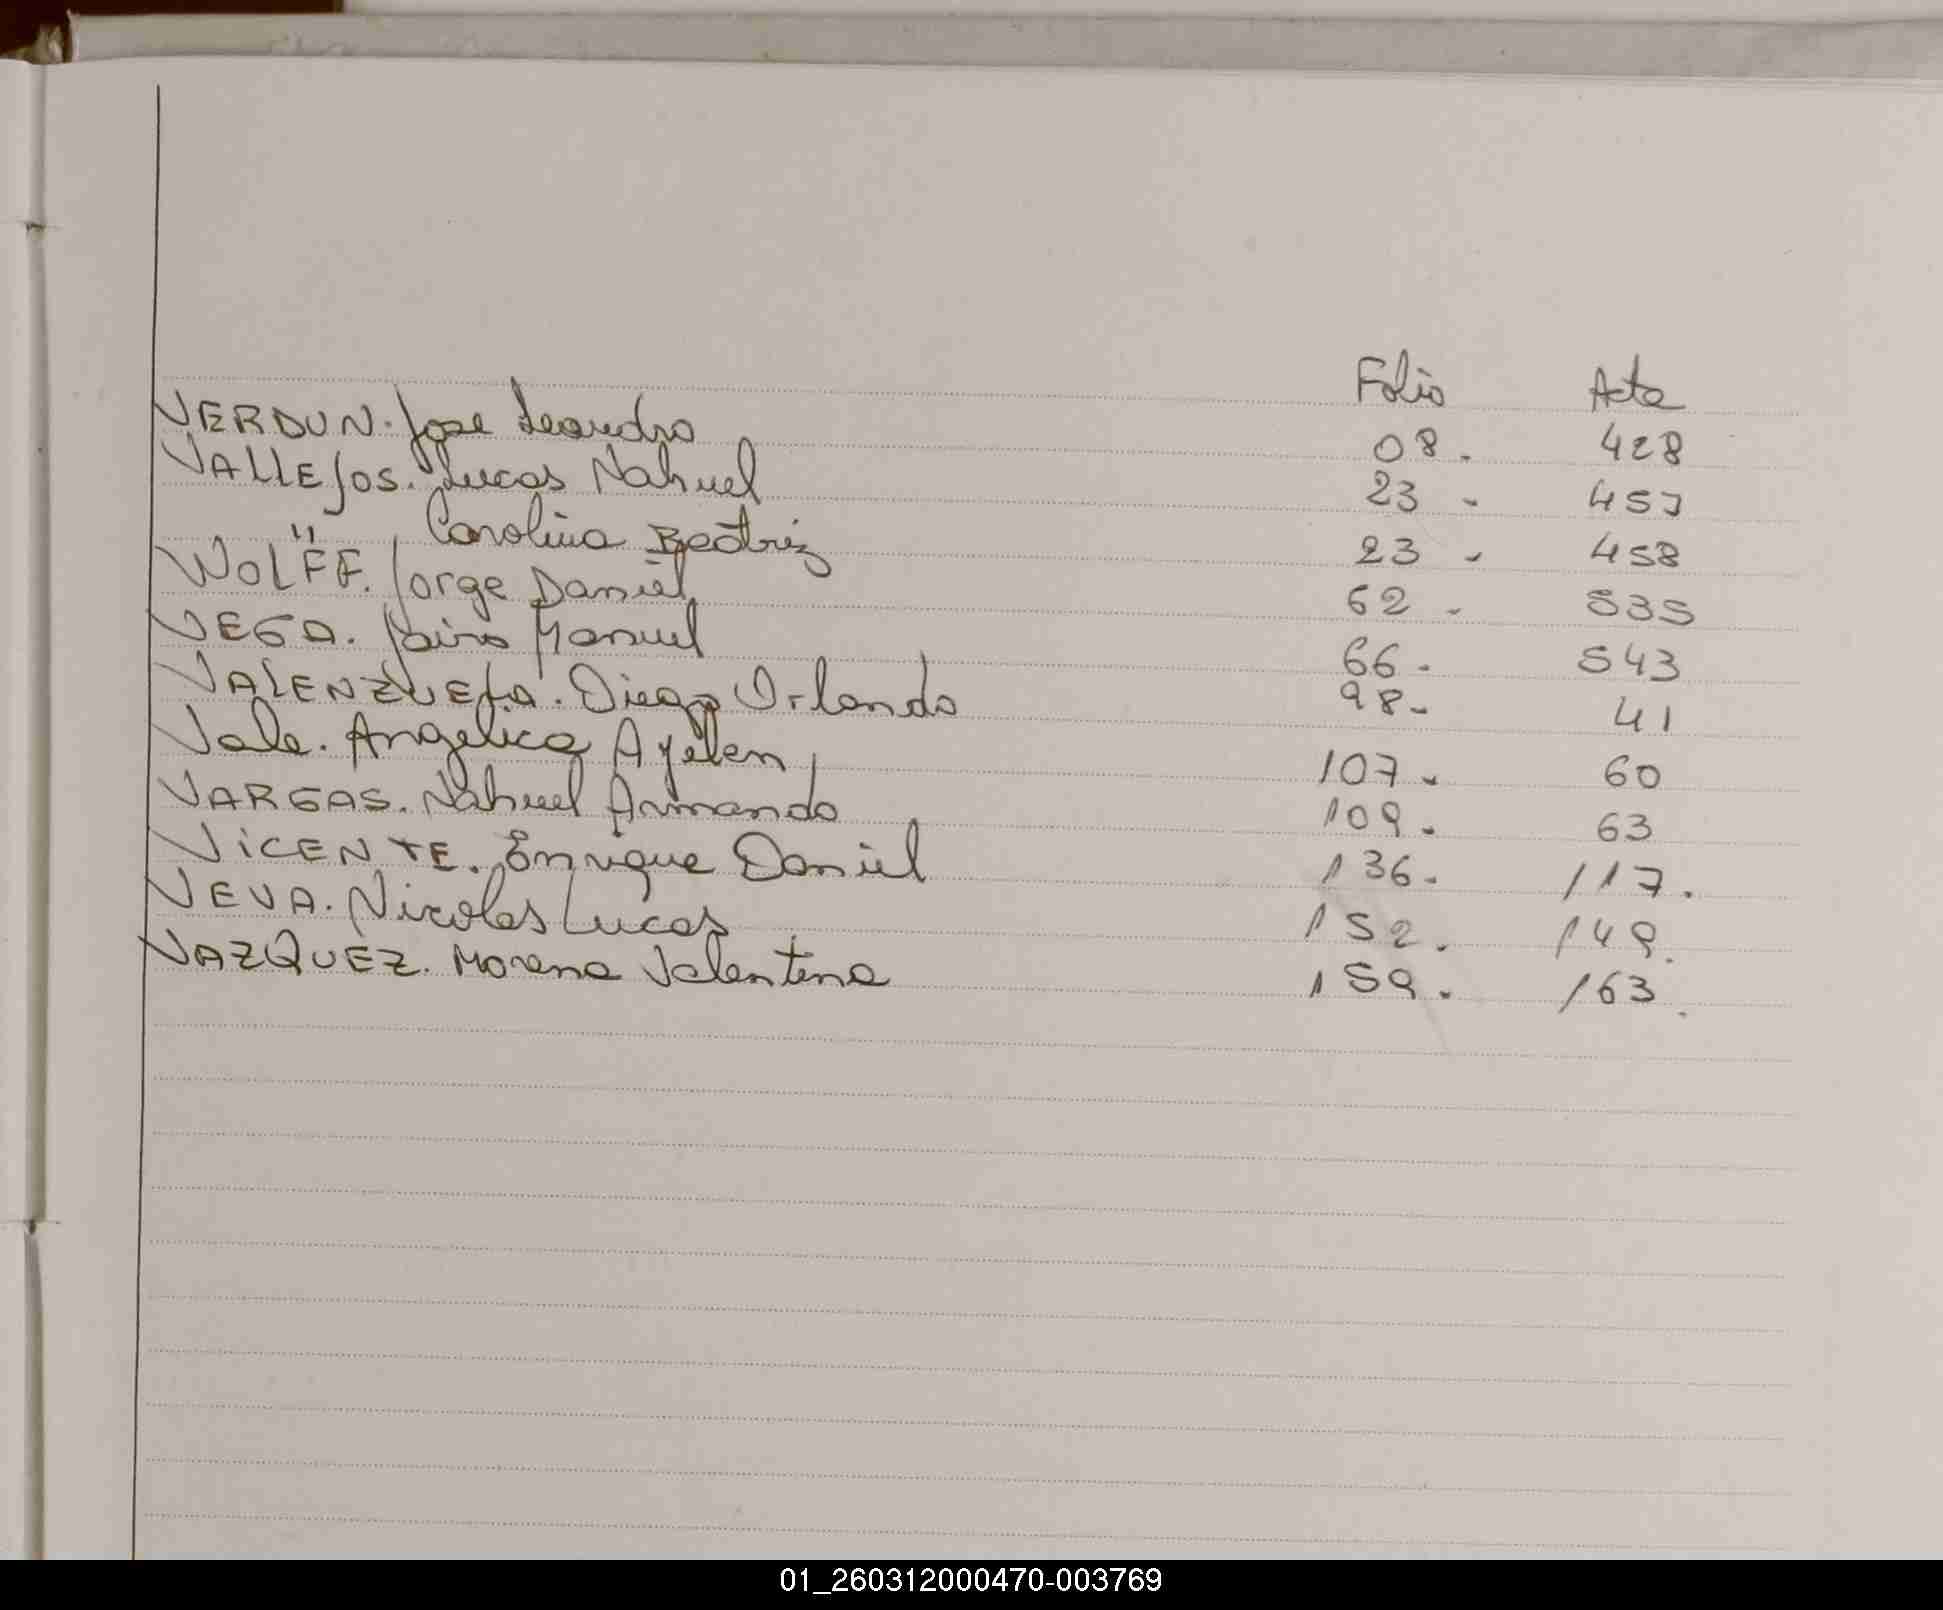 Folio Acta
VERDUN. Jose Leandro 08. 428
VALLEJOS. Lucas Nahuel 23 - 457
" Carolina Beatriz 23 - 458
WOLFF. Jorge Daniel 62 - 535
VEGA. Jairo Manuel 66. 543
VALENZUELA. Diego Orlando 98. 41
Vale. Angelica Ayelen 107. 60
VARGAS. Nahuel Armando 109. 63
VICENTE. Enrique Daniel 136. 117.
VEVA. Nicolas Lucas 152. 149.
VAZQUEZ. Morena Valentina 159. 163.
01_260312000470-003769